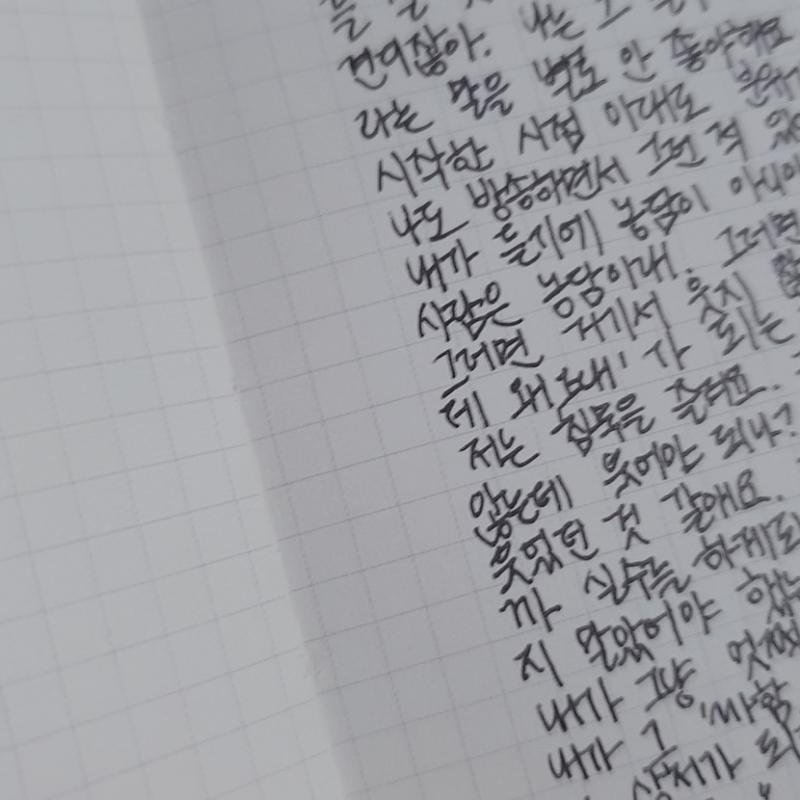 런이잖아. 나는 그
라는 말을 별로 안 좋아해요
시작한 시점 이래도 분위기
나도 방송하면서 그런 적 있
내가 듣기에 농담이 아니야
시작은 농담이래. 그러면
그러면 거기서 웃지
데 왜 그래' 가 되는
저는 침묵을 줄려요.
않는데 웃어야 되나?
웃었던 것 같애요.
까 실수를 하게 되
지 말았어야 했
내가 그냥, 멋쩍
내가 그 '싸함
상처가 되